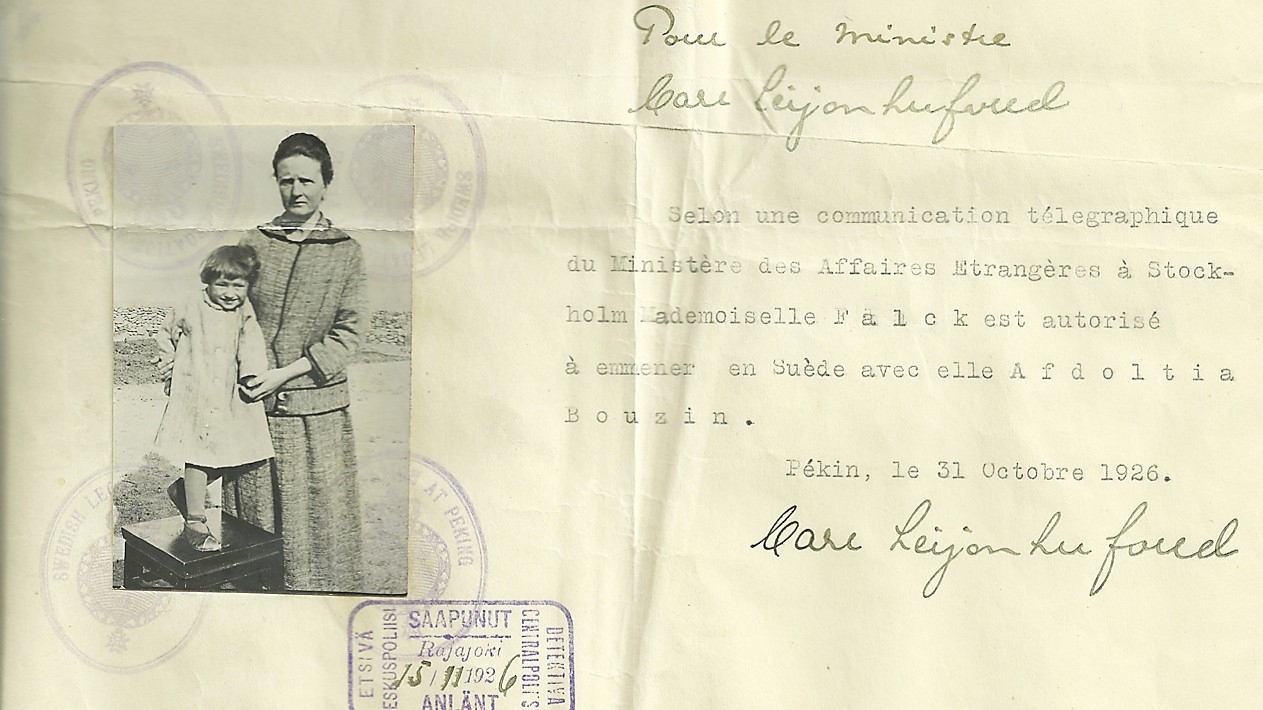 Pour le ministre
Carl Leijonhufvud
Selon une communication télegraphique
du Ministère des Affaires Etrangères à Stock-
holm Mademoiselle F a l c k est autorisé
à emmener en Suède avec elle A f d o l t i a
B o u z i n .
Pékin, le 31 Octobre 1926.
Carl Leijonhufvud
PEKING
SWEDISH LE
SWEDISH LEG
AT PEKING
ETSIVÄ
ESKUSPOLIISI
SAAPUNUT
Rajajoki
15/11 1926
ANLÄNT
DETEKTIVA
CENTRALPOLIS